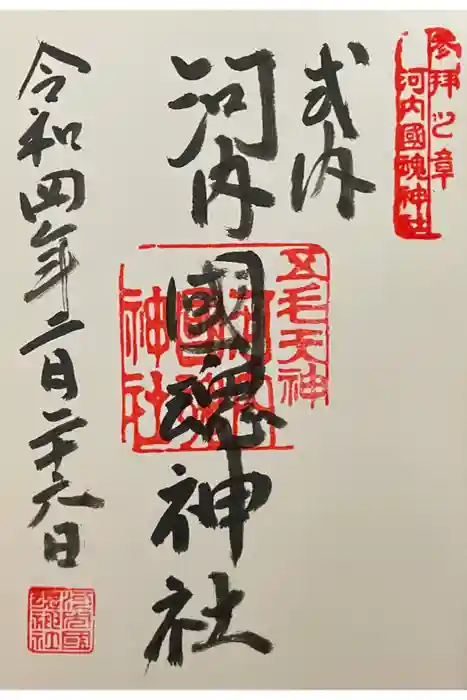 参拝之章
河内國魂神社
式内
河内國魂神社
五毛天神
河内國魂神社
令和四年二月二十六日